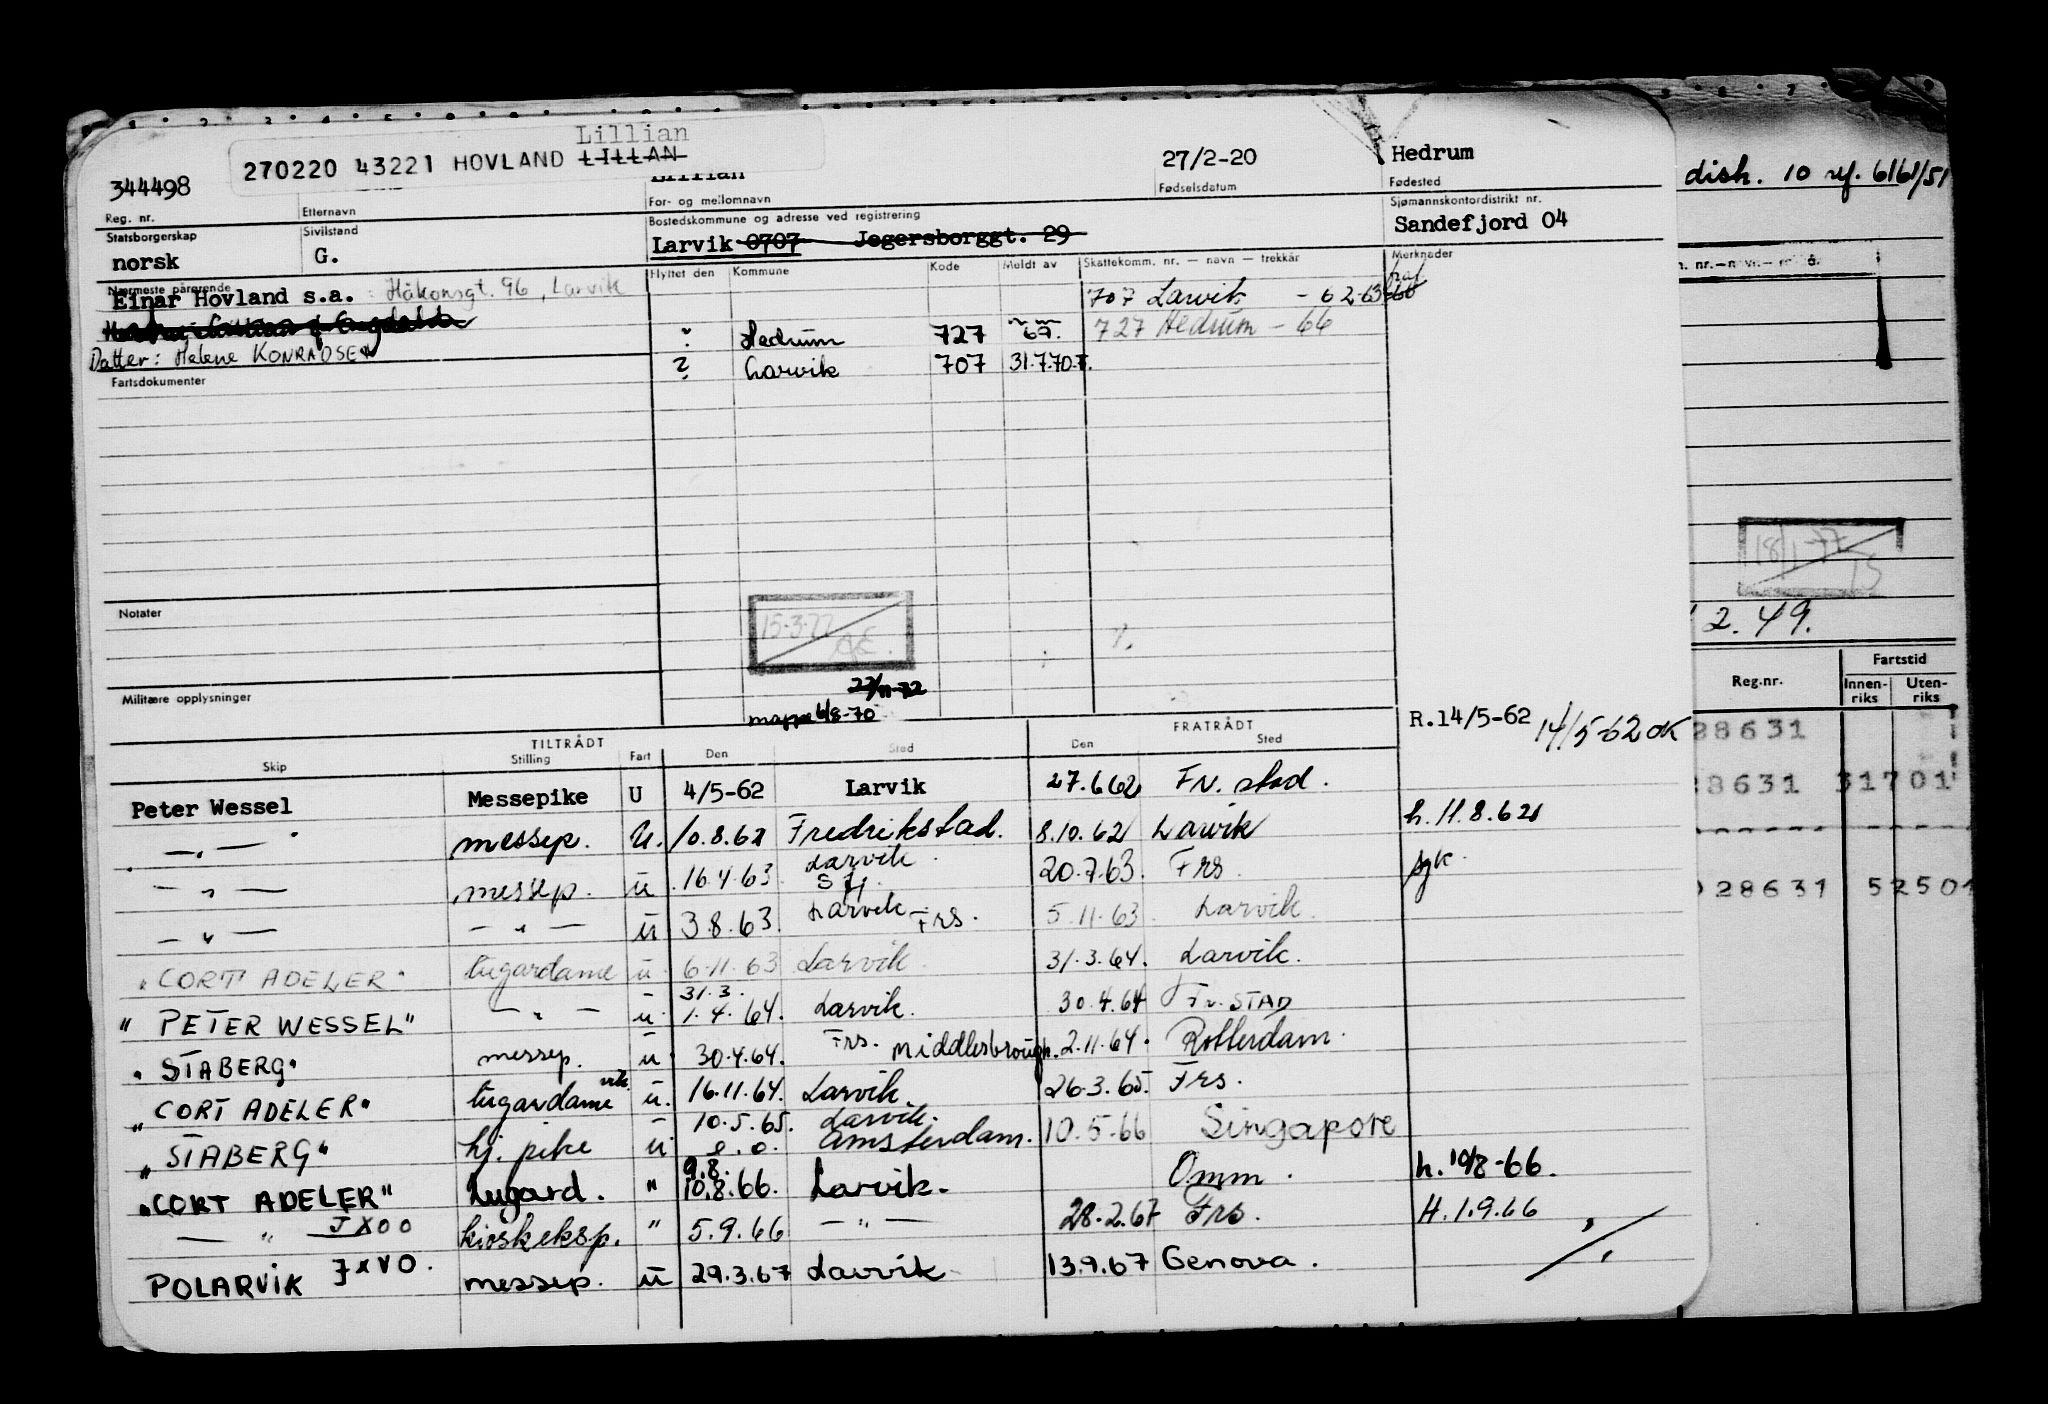 Lillian
270220 43221 HOVLAND LILLAN
344498 Lillian 27/2-20 Hedrum
Reg. nr. Etternavn For- og mellomnavn Fødselsdatum Fødested
Statsborgerskap Sivilstand Bostedskommune og adresse ved registrering Sjømannskontordistrikt nr.
norsk G. Larvik 0707 Jegersborggt. 29 Sandefjord 04
Nærmeste pårørende Flyttet den Kommune Kode Meldt av Skattekomm. nr. — navn — trekkår Merknader
Einar Hovland s.a. : Håkonsgt. 96, Larvik 707 Larvik - 62-63
? Hedrum 727 67. 727 Hedrum - 66
Datter: Helene KONRADSEN ? Larvik 707 31.7.70.
Fartsdokumenter
Notater
15-3-77
Militære opplysninger
22/11-72
mappe 6/8-70
TILTRÅDT FRATRÅDT R.14/5-62 14/5-62 OK
Skip Stilling Fart Den Sted Den Sted
Peter Wessel Messepike U 4/5-62 Larvik 27.6 62 Fr. stad.
— " — messep. U. 10.8.62 Fredrikstad. 8.10.62 Larvik h. 11.8.62
— " — messep. u 16.4.63 Larvik Sfj. 20.7.63. Frs.
— " — — " — u 3.8.63. Larvik. Frs. 5.11.63. Larvik.
"CORT ADELER" lugardame u 6.11.63 Larvik 31.3.64. Larvik.
"PETER WESSEL" — " — u 31.3. 1.4.64. Larvik. 30.4.64 Fr. STAD
"STABERG" messep. u 30.4.64. Frs. Middlesbrough. 2.11.64. Rotterdam.
"CORT ADELER" lugardame vik. u. 16.11.64. Larvik. 26.3.65. Frs.
"STABERG" hj. pike u 10.5.65. Larvik. e.o. Amsterdam. 10.5.66 Singapore
"CORT ADELER" Lugard. " 9.8. 10.8.66. Larvik. Omm. h. 10/8-66.
— " — JXOO kioskeksp. " 5.9.66 — " — 28.2.67 Frs. H. 1.9.66
POLARVIK JXVO. messep. u 29.3.67 Larvik 13.9.67 Genova.
disk. 10 ref. 6161/51
18/1-77
2.49.
Reg.nr. Fartstid
Innenriks Utenriks
28631
28631 31701
028631 52501